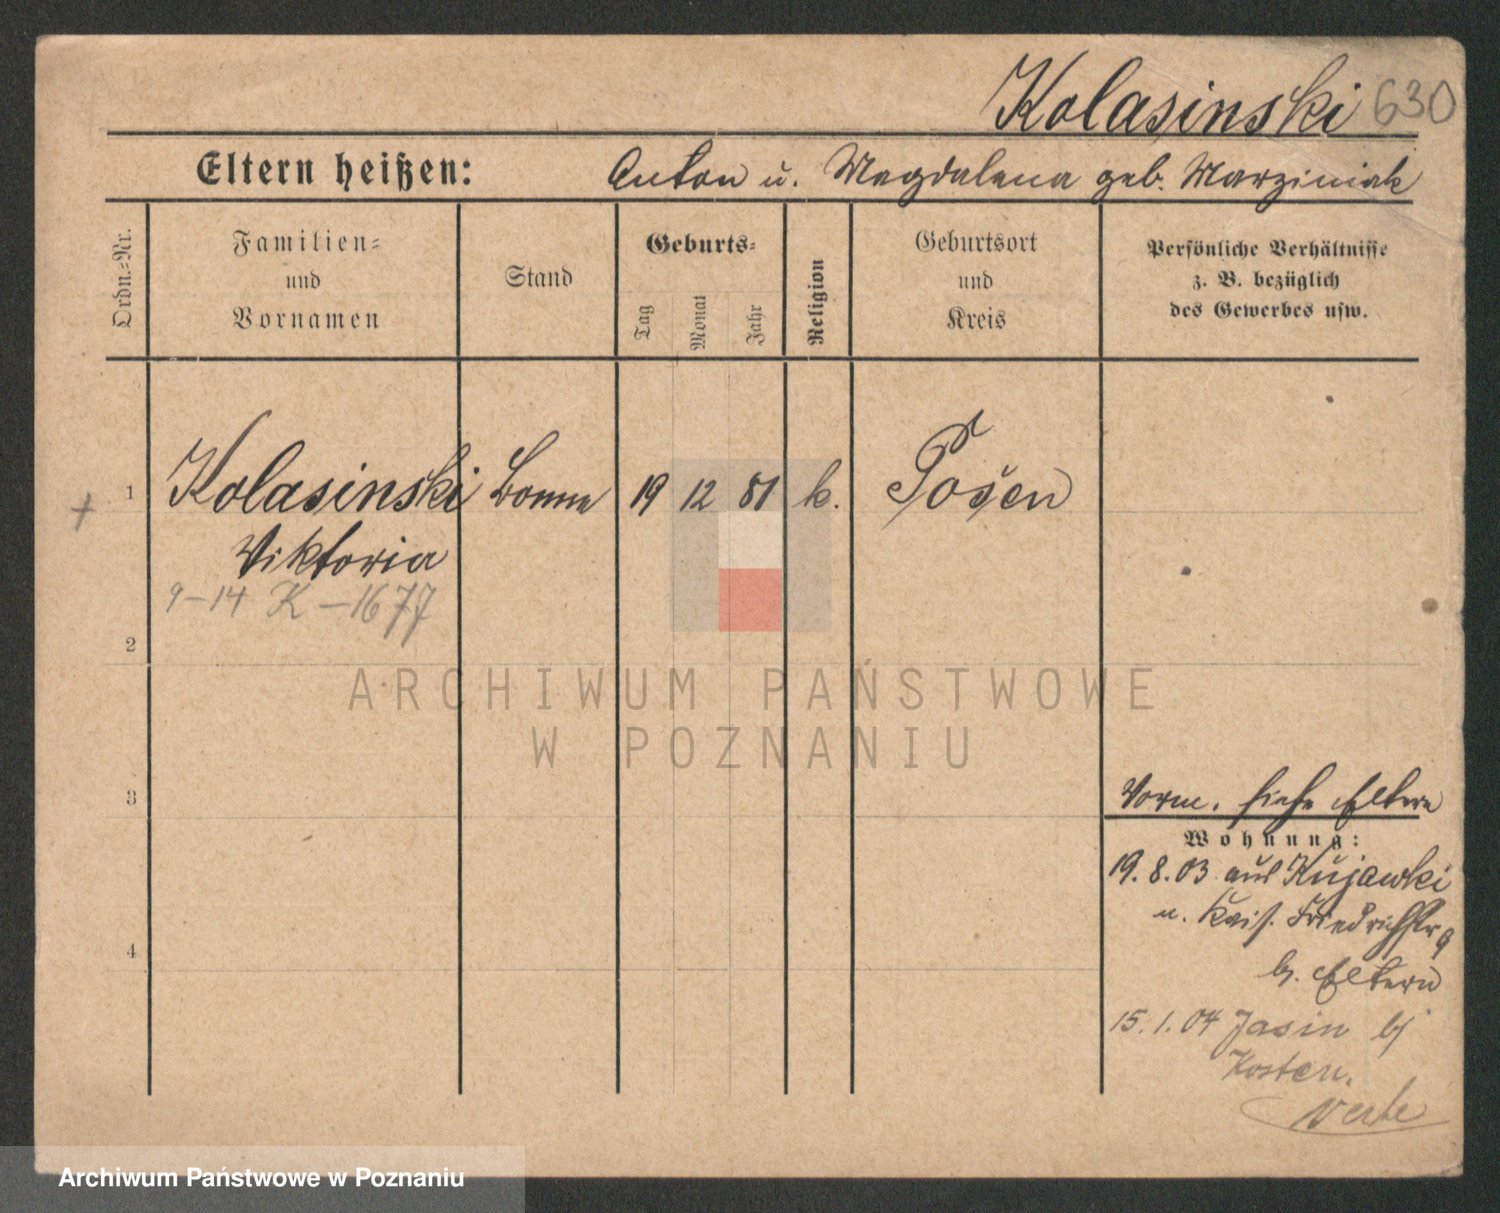 Kolasinski 630
Eltern heißen: Anton u. Magdalena geb. Marziniak
Ordn.=Nr.
Familien=
und
Vornamen
Stand
Geburts=
Tag
Monat
Jahr
Religion
Geburtsort
und
Kreis
Persönliche Verhältnisse
z. B. bezüglich
des Gewerbes usw.
1 Kolasinski Bonne 19 12 81 k. Posen
Viktoria
9-14 K - 1677
2
3
4
Vorm. siehe Eltern
Wohnung:
19. 8. 03 aus Kujawki
n. Kais. Friedrichstr 9
b. Eltern
15. 1. 04 Jasin bj
Kosten.
ARCHIWUM PAŃSTWOWE
W POZNANIU
Archiwum Państwowe w Poznaniu